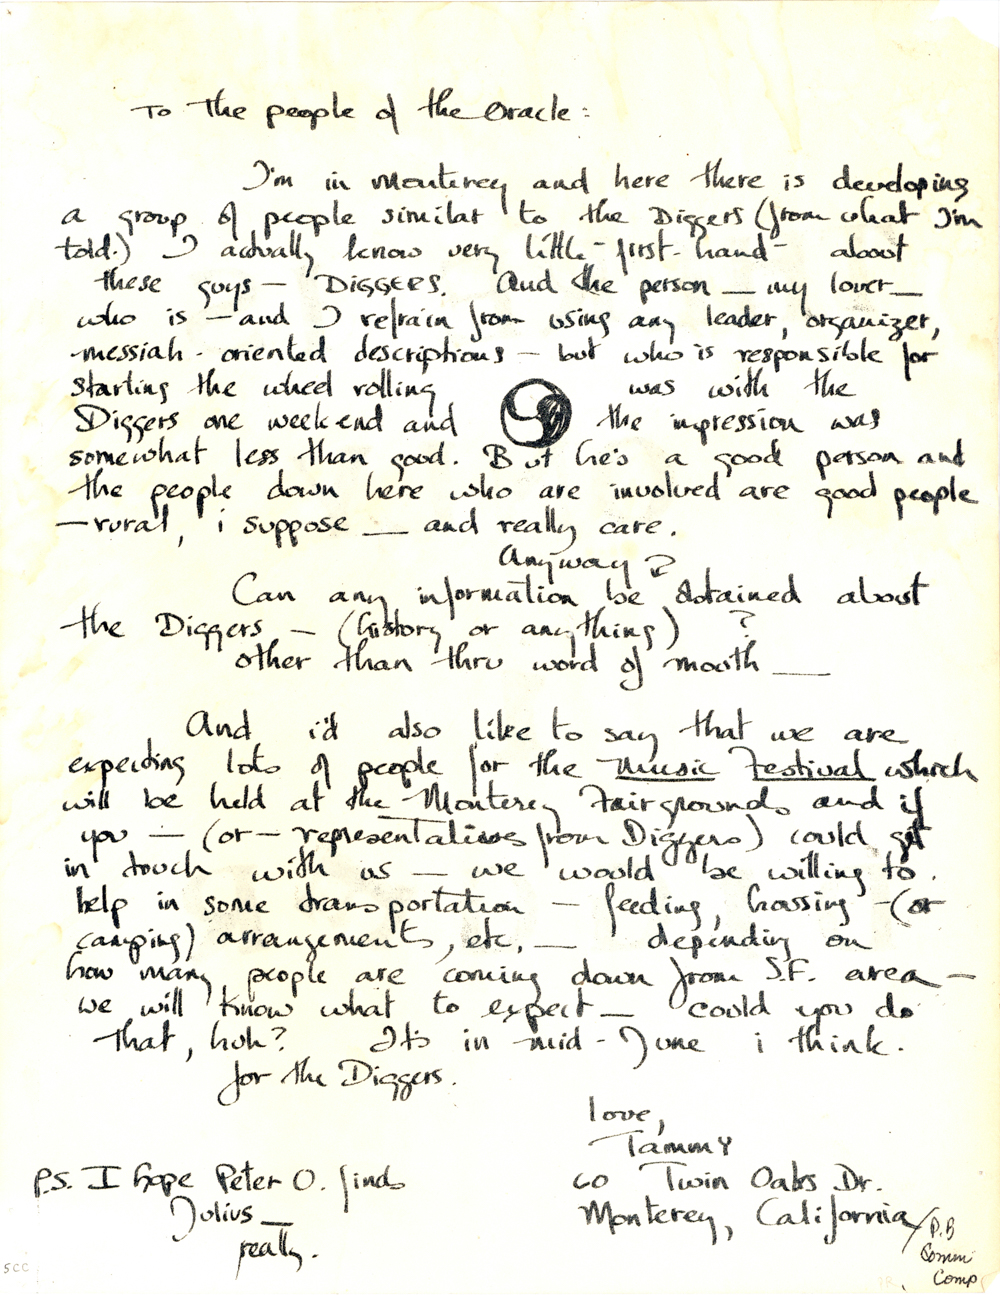 To the people of the Oracle:
I'm in Monterey and here there is developing
a group of people similar to the Diggers (from what I'm
told.) I actually know very little - first-hand - about
these guys - DIGGERS. And the person — my lover —
who is — and I refrain from using any leader, organizer,
messiah-oriented descriptions - but who is responsible for
starting the wheel rolling was with the
Diggers one weekend and the impression was
somewhat less than good. But he's a good person and
the people down here who are involved are good people
—rural, i suppose — and really care.
Anyway?
Can any information be obtained about
the Diggers — (history or anything) ?
other than thru word of mouth —
And i'd also like to say that we are
expecting lots of people for the Music Festival which
will be held at the Monterey Fairgrounds and if
you — (or — representatives from Diggers) could get
in touch with us — we would be willing to
help in some transportation — feeding, housing - (or
camping) arrangements, etc, — depending on
how many people are coming down from S.F. area —
we will know what to expect — could you do
that, huh? It's in mid-June i think.
for the Diggers.
love,
Tammy
P.S. I hope Peter O. finds
co Twin Oaks Dr.
Julius —
Monterey, California
really.
P.B
Comm
Comp
SCC